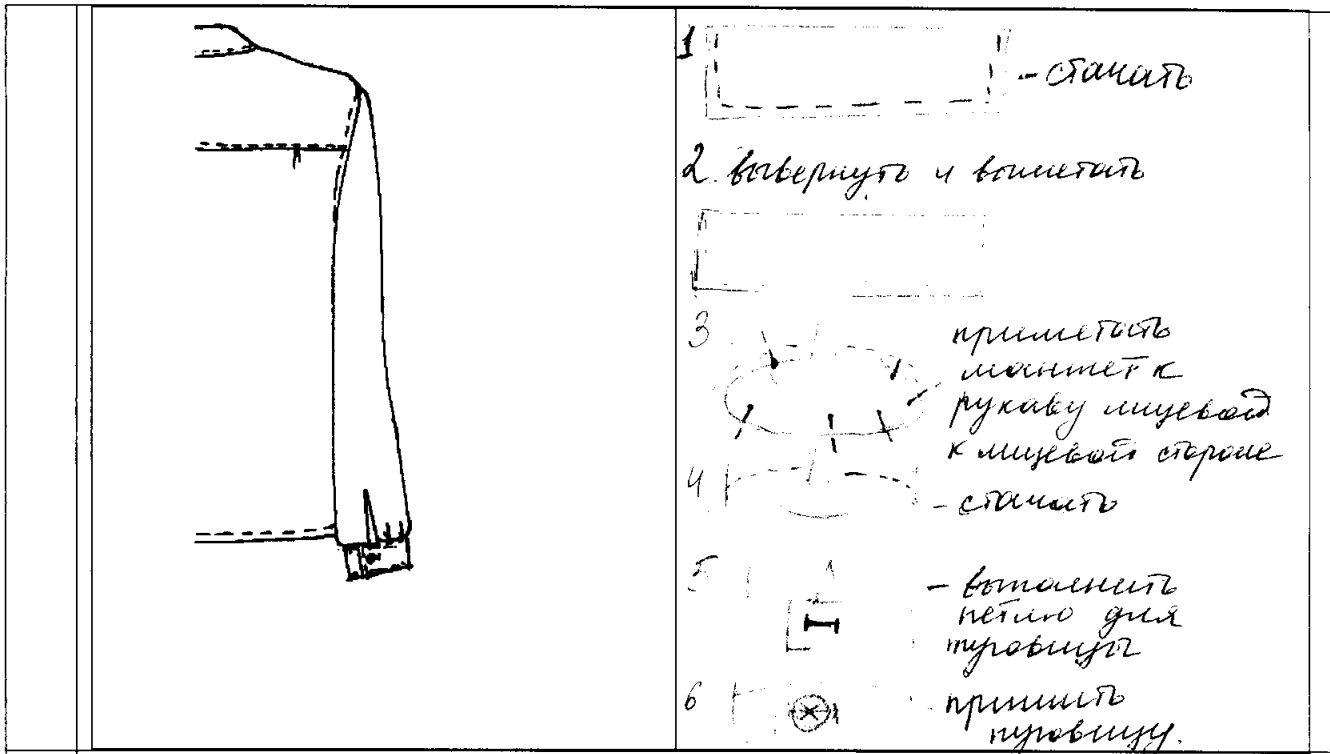 1 - стачать
2. вывернуть и выметать
3 приметать
манжет к
рукаву лицевой
к лицевой стороне
4 - стачать
5 - выполнить
петлю для
пуговицы
6 пришить
пуговицу.